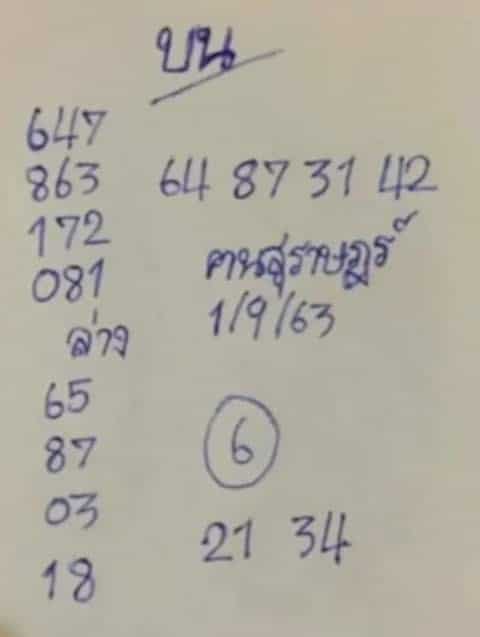 บน
647
863 64 87 31 42
172
คนสุราษฎร์
081
1/9/63
ล่าง
65
87
6
03
21 34
18